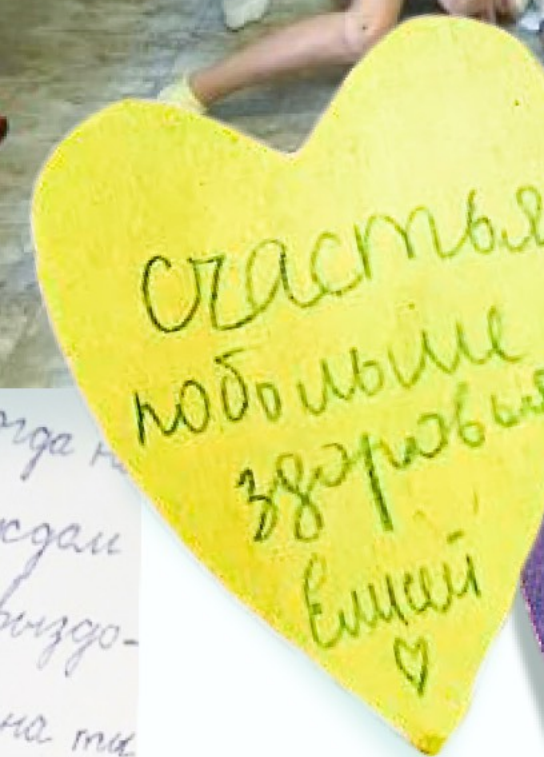 счастья
побольше
здоровья
Елисей
огда н
ждам
выздо-
на ты